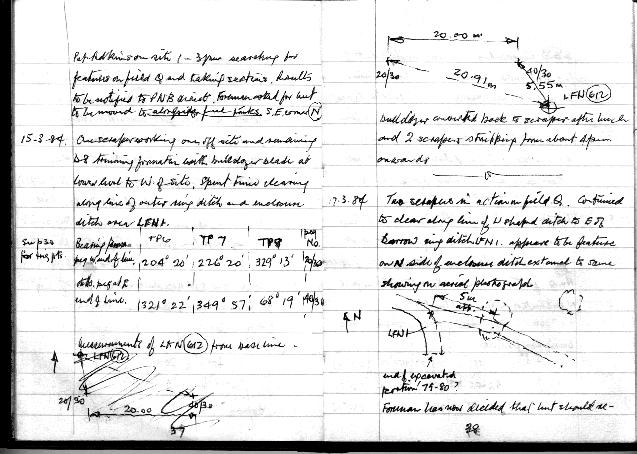 Pat Adkins on site 1-3pm searching for
features on field Q and taking sections. Results
to be notified to PNB direct. Foreman asked for hut
to be moved to S.E. corner N
15-3-84. One scraper working one off site and remaining
D-8 trimming formation with bulldozer blade at
lower level to W. of site. Spent time clearing
along line of outer ring ditch and enclosure
ditch area LFN1.
See p30
for peg pts.
Bearing from TP6 TP7 TP8 peg No.
peg at end of line 204° 20' 226° 20' 329° 13' 20/30
peg at E
end of line. 321° 22' 349° 57' 68° 19' 40/30
Measurements of LFN 612 from base line.
LFN 612
20/30
20.00
40/30
37
20.00 m
20/30
40/30
20.91 m
5.55 m
LFN 612
Bulldozer converted back to scraper after lunch
and 2 scrapers stripping from about 4pm
onwards
17.3.84 Two scrapers in action on field Q. Continued
to clear along line of U shaped ditch to E of
Barrow ring ditch LFN1. appears to be feature
on N side of enclosure ditch external to same
showing on aerial photograph
N
5m
LFN1
end of excavated
portion 79-80?
Foreman has now decided that hut should re-
38